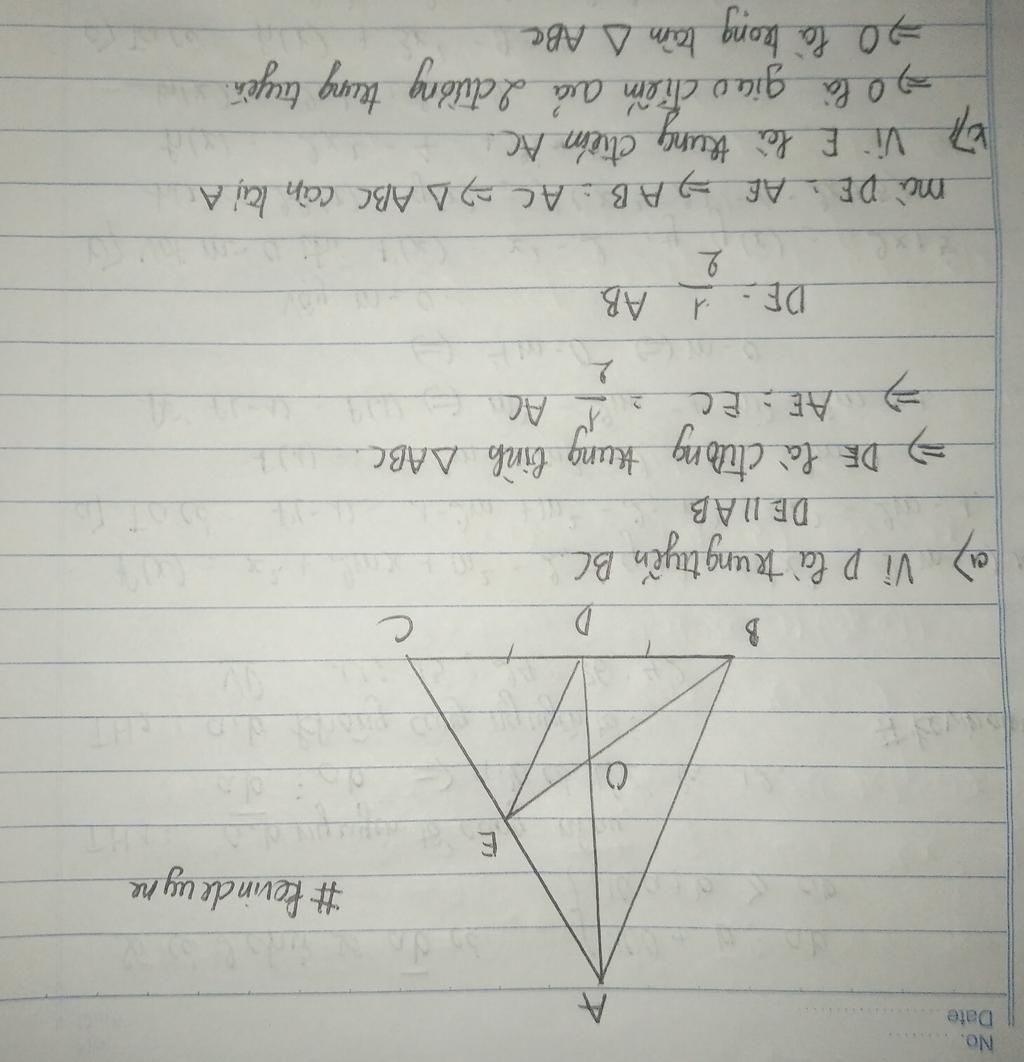 No. ........
Date ..................
A
#kevindewyne
E
O
B
D
C
a) Vì D là trung tuyến BC
DE // AB
=> DE là đường trung bình △ ABC.
=> AE = EC = 1/2 AC
DE = 1/2 AB
mà DE = AE => AB = AC => △ ABC cân tại A
Vì E là trung điểm AC.
=> O là giao điểm của 2 đường trung tuyến.
=> O là trọng tâm △ ABC